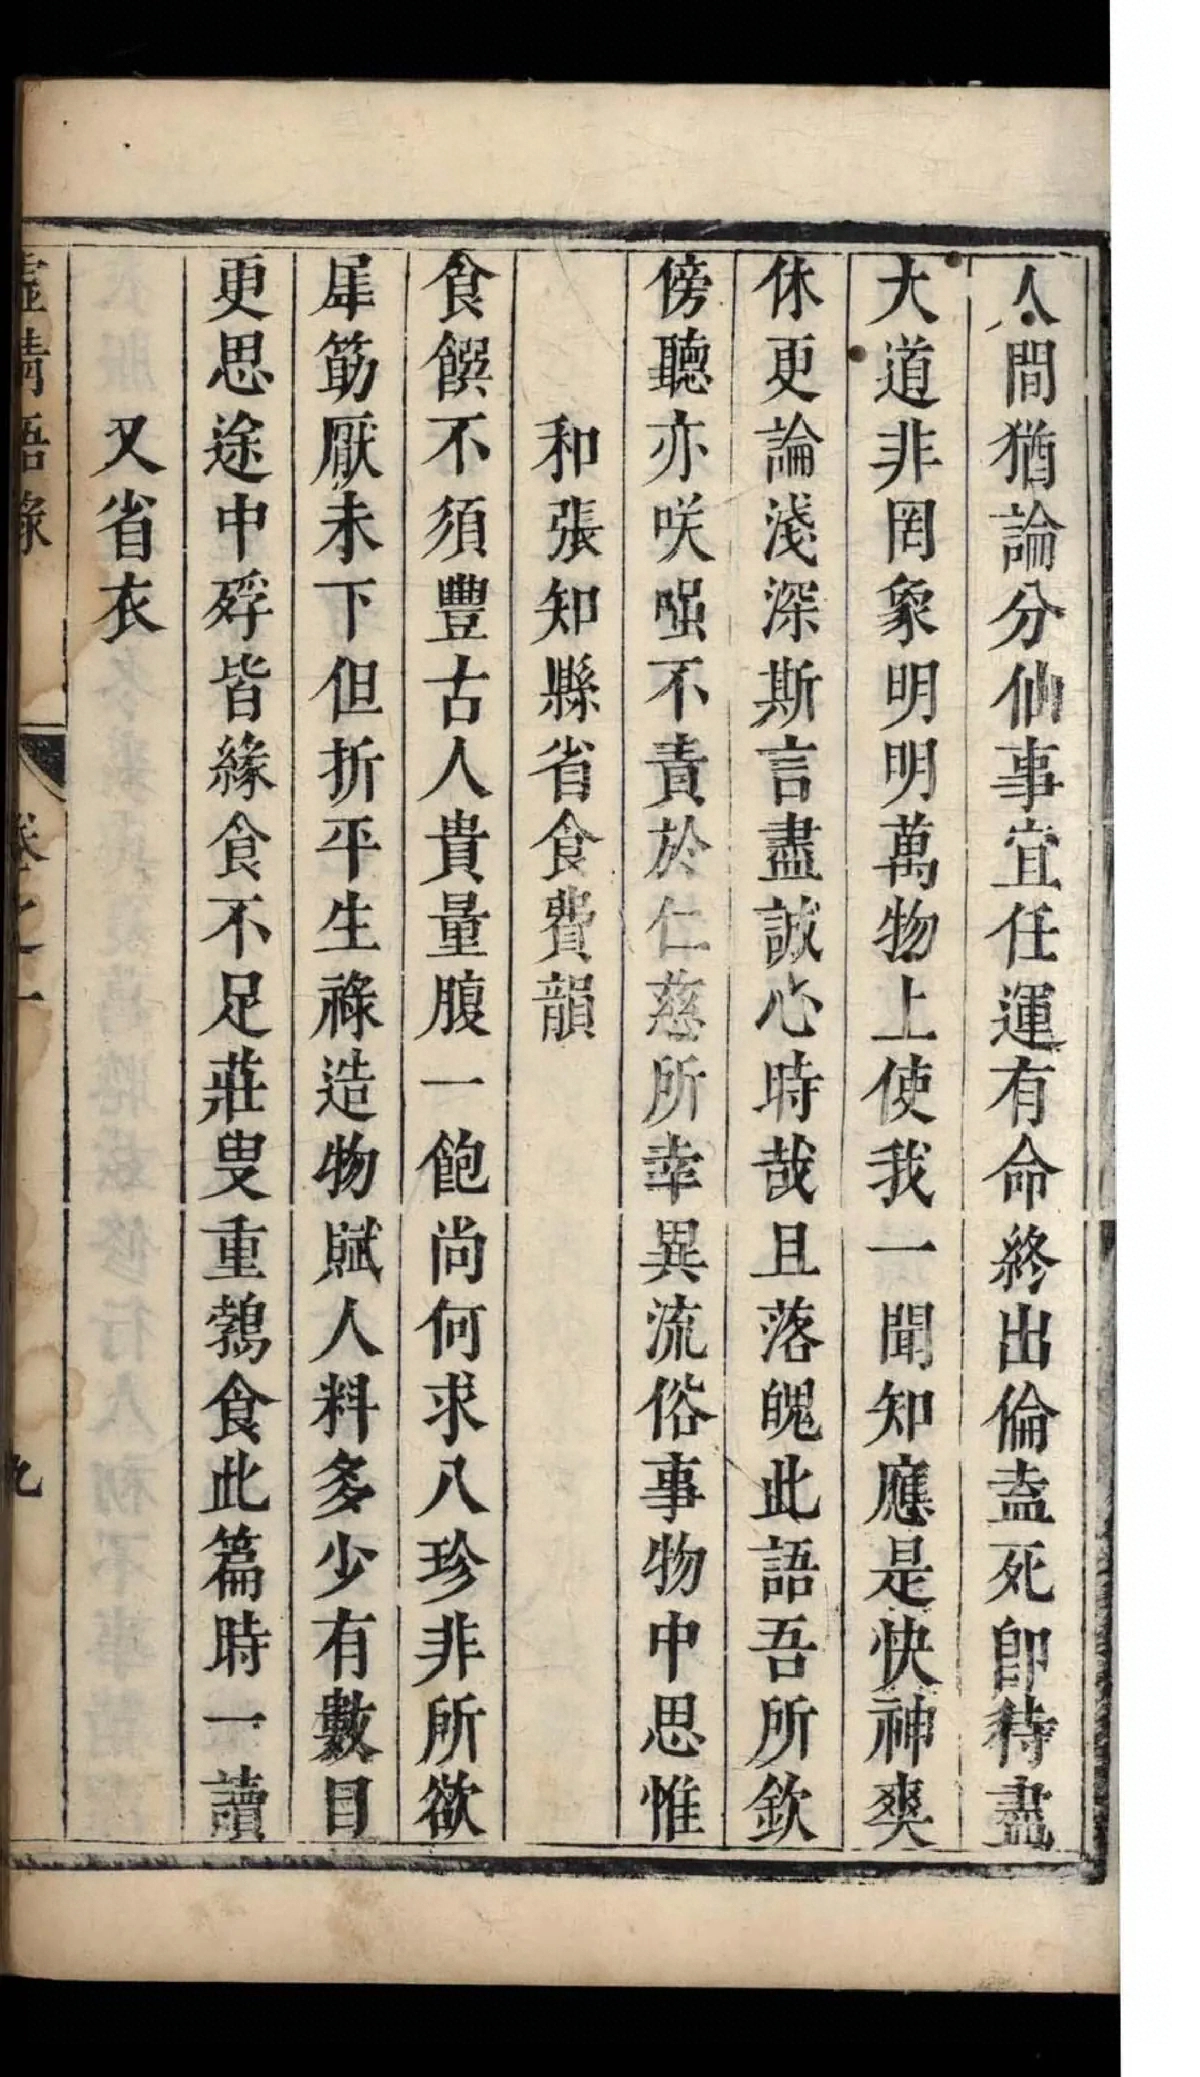 人間猶論分仙事宜任運有命終出倫盍死卽待盡
大道非罔象明明萬物上使我一聞知應是快神爽
休更論淺深斯言盡誠心時哉且落魄此語吾所欽
傍聽亦咲嗤不責於仁慈所幸異流俗事物中思惟
和張知縣省食費韻
食饌不須豐古人貴量腹一飽尚何求八珍非所欲
犀筯厭未下但折平生祿造物賦人料多少有數目
更思途中殍皆緣食不足莊叟重鶉食此篇時一讀
又省衣
虛靖語錄 卷之一 九